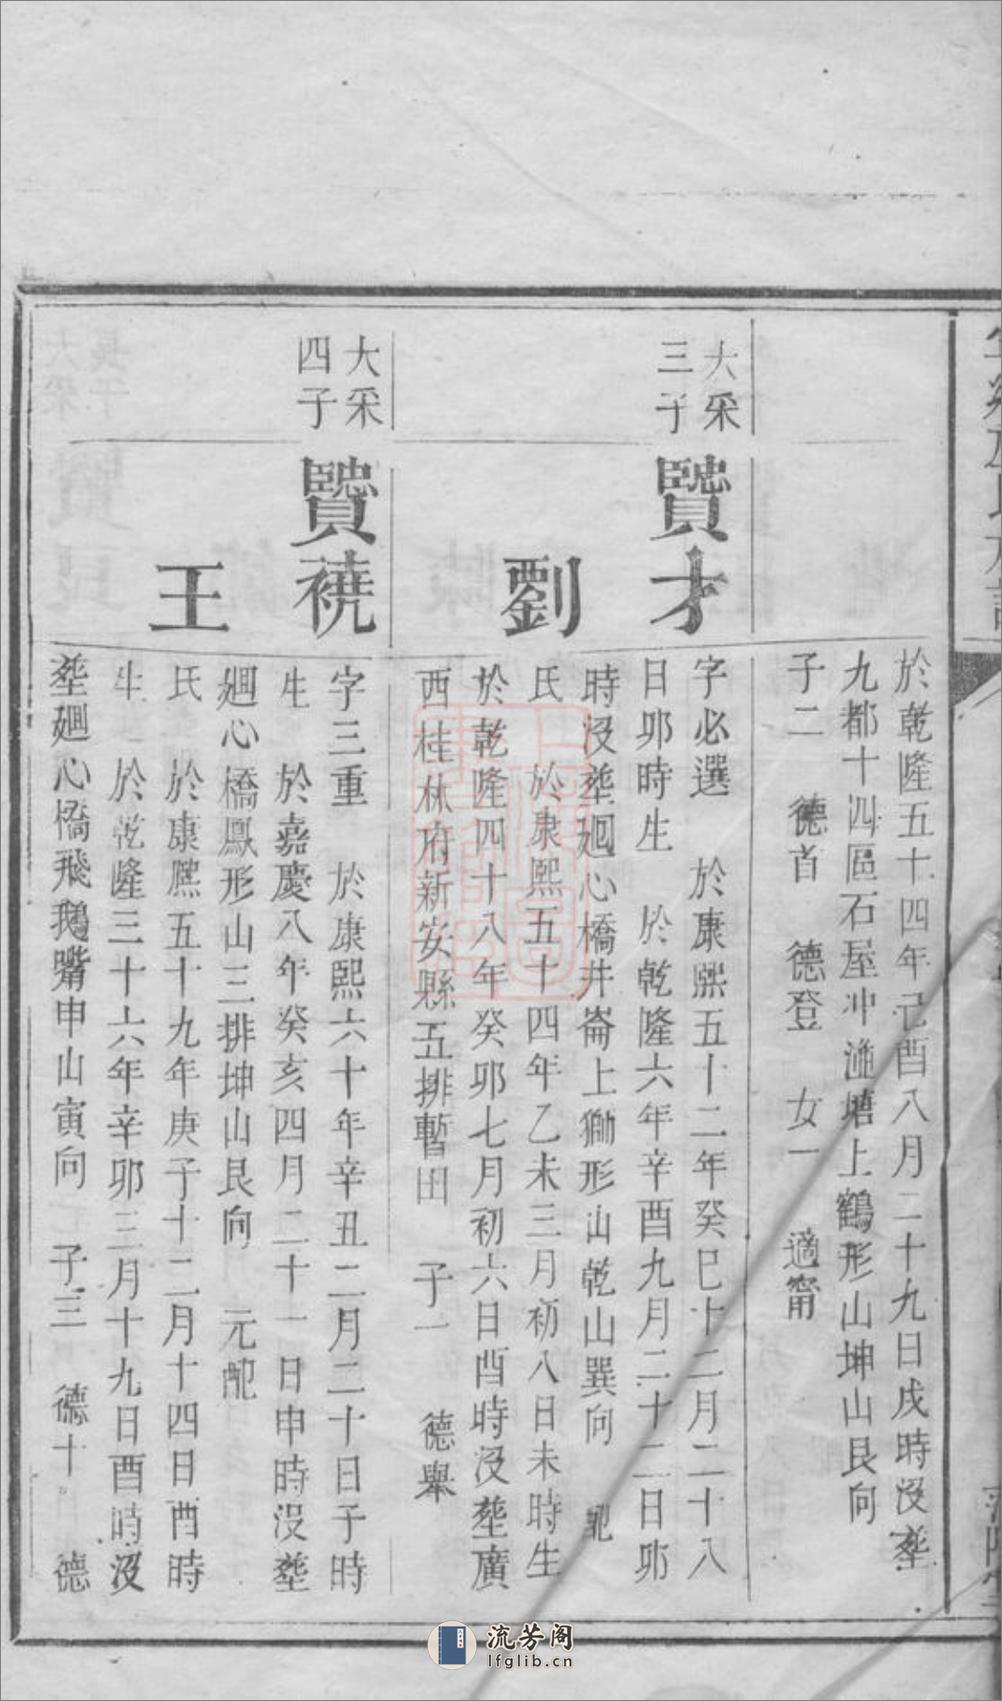 於乾隆五十四年己酉八月二十九日戌時沒塟
九都十四區石屋冲滟塘上鶴形山坤山艮向
子二　德首　德登　女一　適甯
大采
三子
贒才
字必選　於康熙五十二年癸巳十二月二十八
日卯時生　於乾隆六年辛酉九月二十二日卯
時沒塟廻心橋井崙上獅形山乾山巽向　配
劉
氏　於康熙五十四年乙未三月初八日未時生
於乾隆四十八年癸卯七月初六日酉時沒塟廣
西桂林府新安縣五排暫田　子一　德舉
大采
四子
贒襓
字三重　於康熙六十年辛丑二月二十日子時
生　於嘉慶八年癸亥四月二十一日申時沒塟
廻心橋鳳形山三排坤山艮向　元配
王
氏　於康熙五十九年庚子十二月十四日酉時
生　於乾隆三十六年辛卯三月十九日酉時沒
塟廻心橋飛鵝嘴申山寅向　子三　德十。　德
流芳阁
lfglib.cn